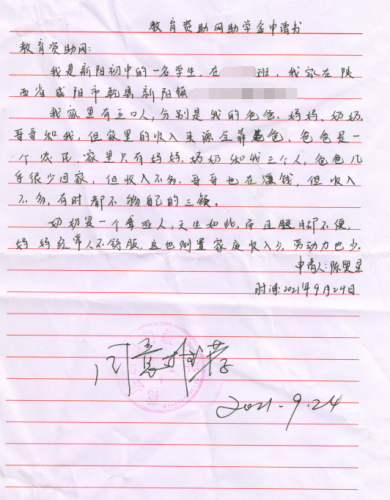 教育资助网助学金申请书
教育资助网:
我是新阳初中的一名学生,在 班,我家在陕
西省咸阳市乾县新阳镇
我家里有五口人,分别是我的爸爸,妈妈,奶奶,
哥哥和我,但家里的收入来源全靠爸爸,爸爸是一
个农民,家里只有妈妈,奶奶和我三个人,爸爸几
乎很少回家,但收入不多,哥哥也在赚钱,但收入
不多,有时都不够自己的三顿。
奶奶是一个聋哑人,天生如此,而且腿脚不便,
妈妈经常人不舒服
家庭收入少,劳动力也少。
申请人:陈
时间2021年9月24日
2021.9.24